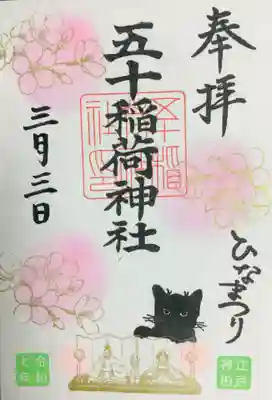 奉拝
五十稲荷神社
三月三日
ひなまつり
江戸
神田